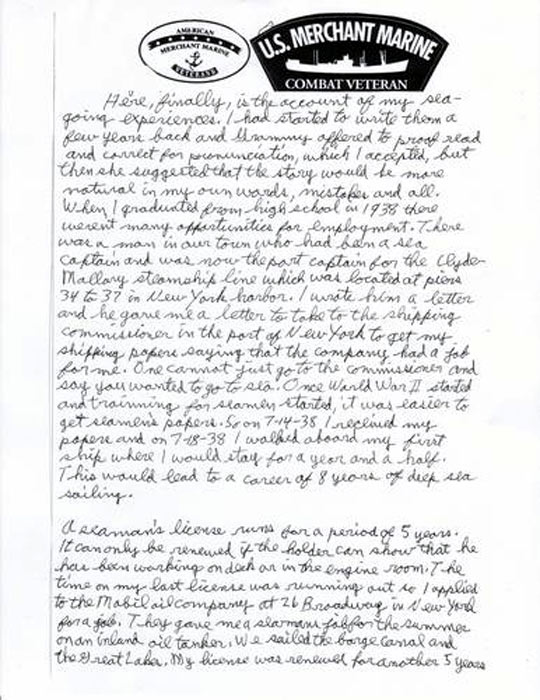 AMERICAN
MERCHANT MARINE
VETERANS
U.S. MERCHANT MARINE
COMBAT VETERAN
Here, finally, is the account of my sea-
going experiences. I had started to write them a
few years back and Grammy offered to proof read
and correct for pronunciation, which I accepted, but
then she suggested that the story would be more
natural in my own words, mistakes and all.
When I graduated from high school in 1938 there
werent many opportunities for employment. There
was a man in our town who had been a sea
captain and was now the port captain for the Clyde-
Mallory steamship line which was located at piers
34 to 37 in New York harbor. I wrote him a letter
and he gave me a letter to take to the shipping
commissioner in the port of New York to get my
shipping papers saying that the company had a job
for me. One cannot just go to the commissioner and
say you wanted to go to sea. Once World War II started
and trainning for seamen started, it was easier to
get seamens papers. So on 7-14-38 I received my
papers and on 7-18-38 I walked aboard my first
ship where I would stay for a year and a half.
This would lead to a career of 8 years of deep sea
sailing.
A seaman's license runs for a period of 5 years.
It can only be renewed if the holder can show that he
has been working on deck or in the engine room. The
time on my last license was running out so I applied
to the Mobil oil company at 26 Broadway in New York
for a job. They gave me a seamans job for the summer
on an inland oil tanker. We sailed the barge Canal and
the Great Lakes. My license was renewed for another 5 years